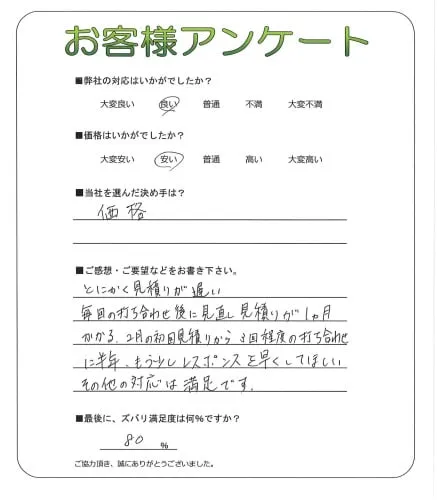 お客様アンケート
■弊社の対応はいかがでしたか？
大変良い 良い 普通 不満 大変不満
■価格はいかがでしたか？
大変安い 安い 普通 高い 大変高い
■当社を選んだ決め手は？
価格
■ご感想・ご要望などをお書き下さい。
とにかく見積りが遅い
毎回の打ち合わせ後に見直し見積りが1ヵ月
かかる。2月の初回見積りから3回程度の打ち合わせ
に半年、もう少しレスポンスを早くしてほしい
その他の対応は満足です。
■最後に、ズバリ満足度は何%ですか？
80 %
ご協力頂き、誠にありがとうございました。